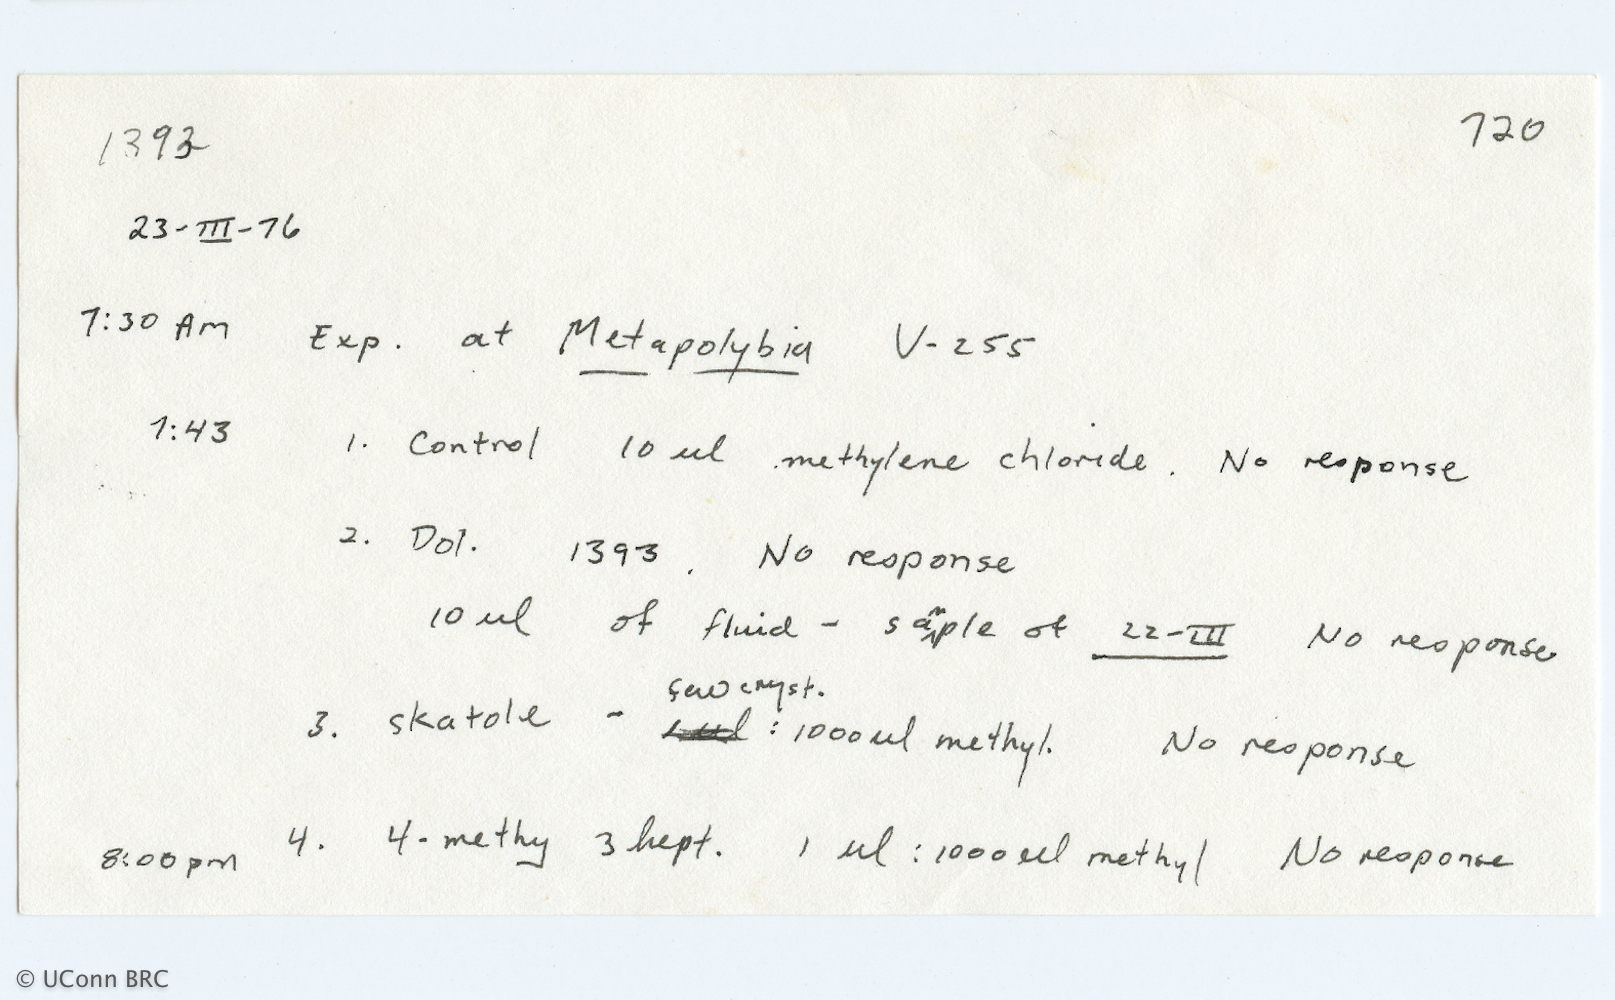 1393 720
23-III-76
7:30 Am Exp. at Metapolybia V-255
7:43 1. Control 10 ul methylene chloride. No response
2. Dol. 1393. No response
10 ul of fluid - sample of 22-III No response
few cryst.
3. skatole - : 1000 ul methyl. No response
8:00 pm 4. 4-methy 3 hept. 1 ul : 1000 ul methyl No response
© UConn BRC